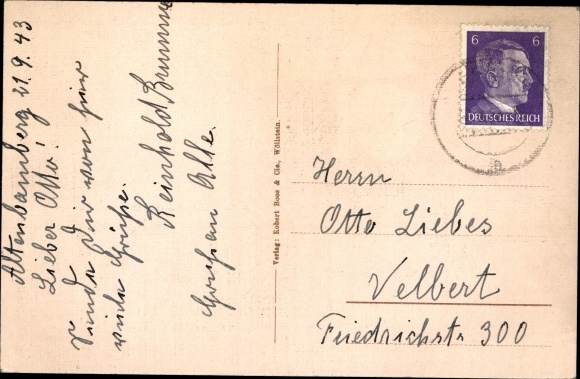 Altenbamberg 21.9.43
Lieber Otto!
Sende Dir von hier
viele Grüße.
Reinhold Brummer
Gruß an Alle.
Verlag: Robert Boos & Cie., Wöllstein.
6 6
DEUTSCHES REICH
Herrn
Otto Liebes
Velbert
Friedrichstr 300